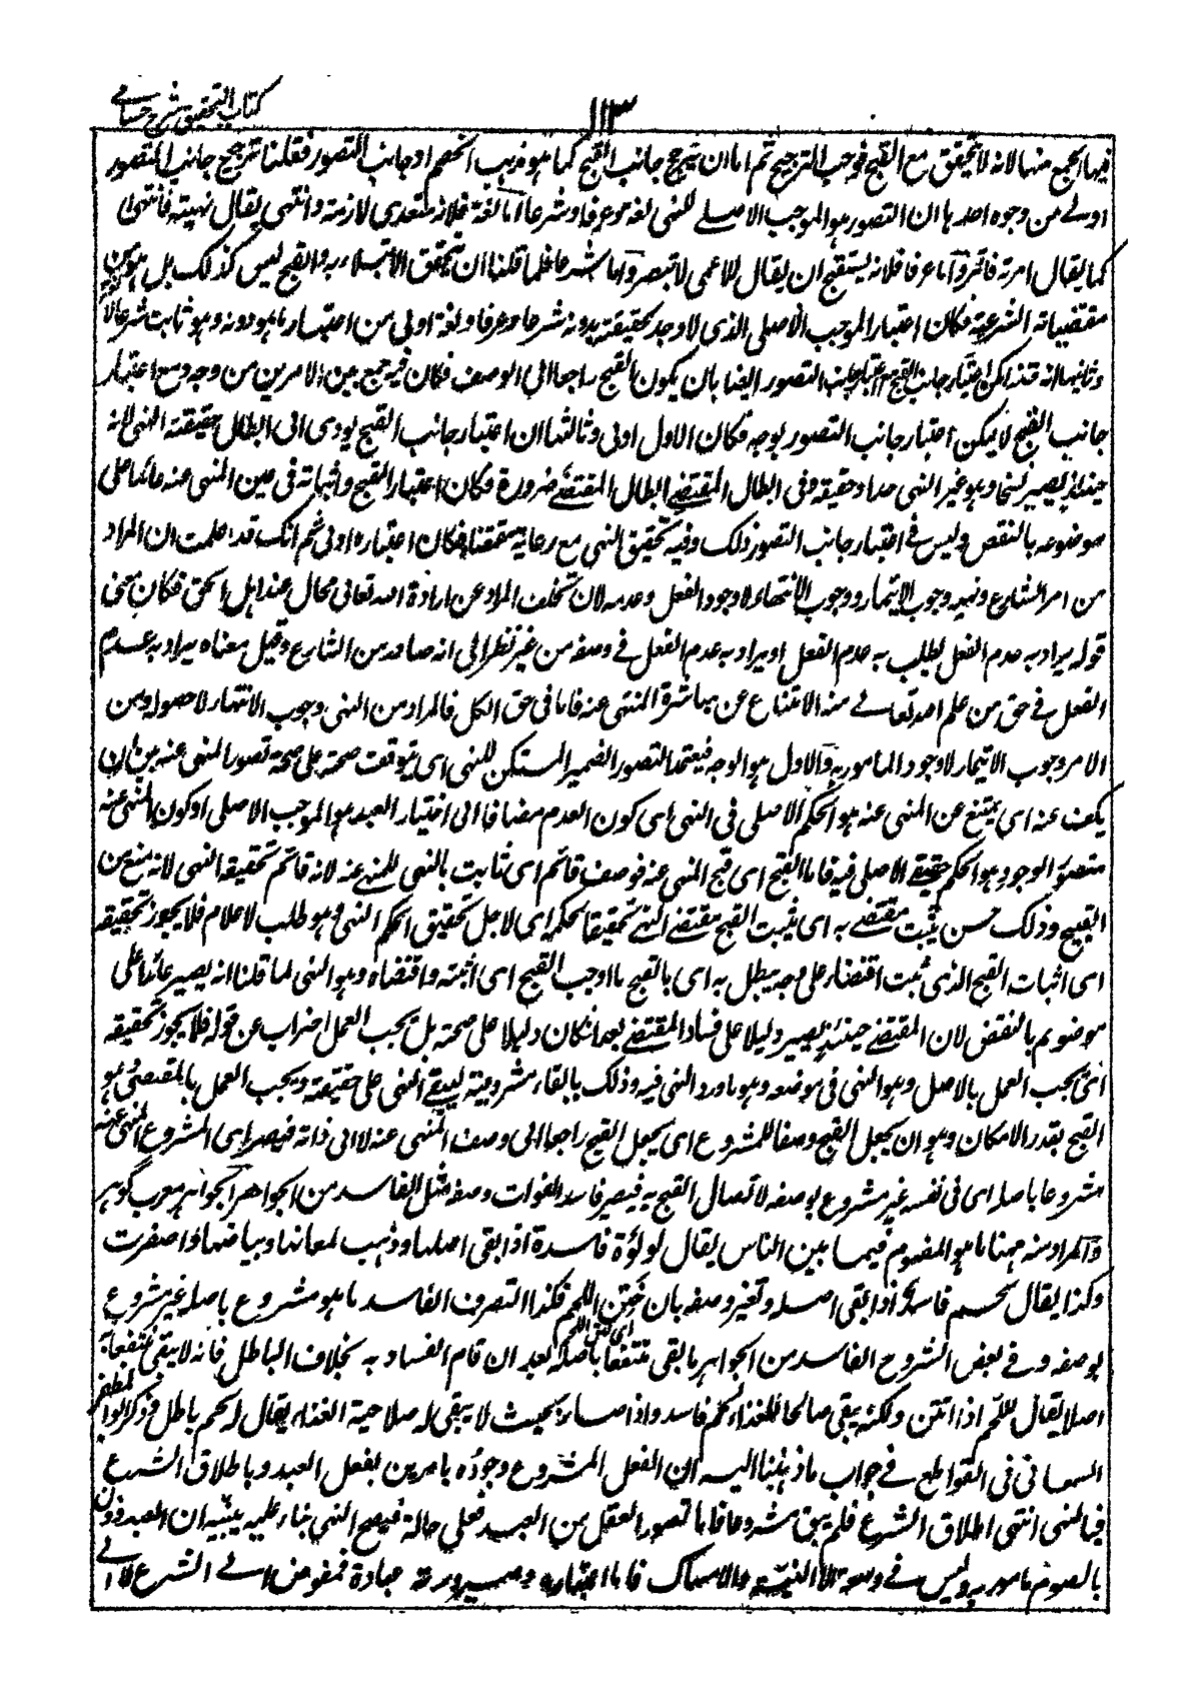 كتاب التحقيق شرح حسامي
١١٣
فيها الجمع منها لانه لا يتحقق مع القبح فوجب الترجيح ثم اما ان يترجح جانب القبح كما هو مذهب الخصم او جانب التصور فقلنا ترجيح جانب التصور
اولى من وجوه احدها ان التصور هو الموجب الاصلى للنهى لغة وعرفا وشرعا اما لغة فلانه متعدى لازمته وانتهى يقال نهيته فانتهى
كما يقال امرته فائتمر واما عرفا فلانه يستقبح ان يقال للاعمى لا تبصر واما شرعا فلما قلنا ان تحقق الابتلاء به والقبح ليس كذلك بل هو من
مقتضياته الشرعية فكان اعتبار الموجب الاصلى الذى لا وجد لحقيقته بدونه شرعا وعرفا ولغة اولى من اعتبار ما هو دونه وهو ثابت شرعا لا
وثانيها انه قد امكن اعتبار جانب القبح مع اعتبار جانب التصور ايضا بان يكون القبح راجعا الى الوصف فكان فيه جمع بين الامرين من وجه ومع اعتبار
جانب القبح لا يمكن اعتبار جانب التصور بوجه فكان الاول اولى وثالثها ان اعتبار جانب القبح يودى الى ابطال حقيقة النهى لانه
حينئذ يصير نسخا وهو غير النهى حدا وحقيقة وفى ابطال المقتضى ابطال المقتضى ضرورة فكان اعتبار القبح واثباته فى عين المنهى عنه عائدا على
موضوعه بالنقض وليس فى اعتبار جانب التصور ذلك وفيه تحقيق النهى مع رعاية مقتضاه فكان اعتباره اولى ثم انك قد علمت ان المراد
من امر الشارع ونهيه وجوب الايتمار ووجوب الانتهاء لا وجود الفعل وعدمه لان تخلف المراد عن ارادة الله تعالى محال عند اهل الحق فكان معنى
قوله يراد به عدم الفعل يطلب به عدم الفعل او يراد به عدم الفعل فى وصفه من غير نظر الى انه صادر من الشارع وقيل معناه يراد به عدم
الفعل فى حق من علم الله تعالى منه الامتناع عن مباشرة المنهى عنه فاما فى حق الكل فالمراد من النهى وجوب الانتهاء لا حصوله ومن
الامر وجوب الايتمار لا وجود المامور به والاول هو الوجه فيعتمد التصور الضمير المستكن للنهى اى يتوقف صحته على صحة تصور المنهى عنه بين ان
يكف عنه اى يمتنع عن المنهى عنه هو الحكم الاصلى فى النهى اى كون العدم مضافا الى اختيار العبد هو الموجب الاصلى او كون المنهى عنه
متصور الوجود هو الحكم حقيقى الاصلى فيه فاما القبح اى قبح المنهى عنه فوصف قائم اى ثابت بالنهى للمنهى عنه لانه قائم تحقيقه النهى لانه منع عن
القبيح وذلك حسن يثبت مقتضى به اى فيثبت القبح مقتضى النهى تحقيقا لحكمه اى لاجل تحقيق الحكم النهى وهو طلب الاعلام فلا يجوز تحقيقه
اى اثبات القبح الذى ثبت اقتضاء على وجه يبطل به اى بالقبح ما اوجب القبح اى اثبته واقتضاه وهو النهى لما قلنا انه يصير عائدا على
موضوعه بالنقض لان المقتضى حينئذ يصير دليلا على فساد المقتضى بعد ما كان دليلا على صحته بل يجب العمل اضراب عن قوله فلا يجوز تحقيقه
اى يجب العمل بالاصل وهو النهى فى موضعه وهو ما ورد النهى فيه وذلك بابقاء مشروعيته ليبقى النهى على حقيقته ويجب العمل بالمقتضى وهو
القبح بقدر الامكان وهو ان يجعل القبح وصفا للمشروع اى يجعل القبح راجعا الى وصف المنهى عنه لا الى ذاته فيصير اى المشروع المنهى عنه
مشروعا باصله اى فى نفسه غير مشروع بوصفه لاتصال القبح به فيصير فاسدا لفوات وصفه مثل الفاسد من الجواهر الجواهر معرب گوهر
والمراد منه ههنا ما هو المفهوم فيما بين الناس يقال لؤلؤة فاسدة اذا بقى اصلها وذهب لمعانها وبياضها واصفرت
وكذا يقال لحم فاسد اذا بقى اصله وتغير وصفه بان خنز اللحم فكذا التصرف الفاسد ما هو مشروع باصله غير مشروع
اى نتن اللحم
بوصفه وفى بعض الشروح الفاسد من الجواهر ما بقى منتفعا باصله بعد ان قام الفساد به بخلاف الباطل فانه لا يبقى منتفعا به
اصلا يقال للحم اذا انتن ولكنه يبقى صالحا للغذاء لحم فاسد واذا صار بحيث لا يبقى له صلاحية الغذاء يقال له لحم باطل وذكر ابو المظفر
السمعانى فى القواطع فى جواب ما ذهبنا اليه ان الفعل المشروع وجوده بامرين بفعل العبد وباطلاق الشرع
فبالنهى انتهى اطلاق الشرع فلم يبق مشروعا فاما تصور الفعل من العبد فعلى حاله فيصح النهى بناء عليه يبينه ان العبد
بالصوم مامور به وليس فى وسعه الا النية والامساك فاما اعتباره وصيرورته عبادة فمفوض الى الشرع لا الى